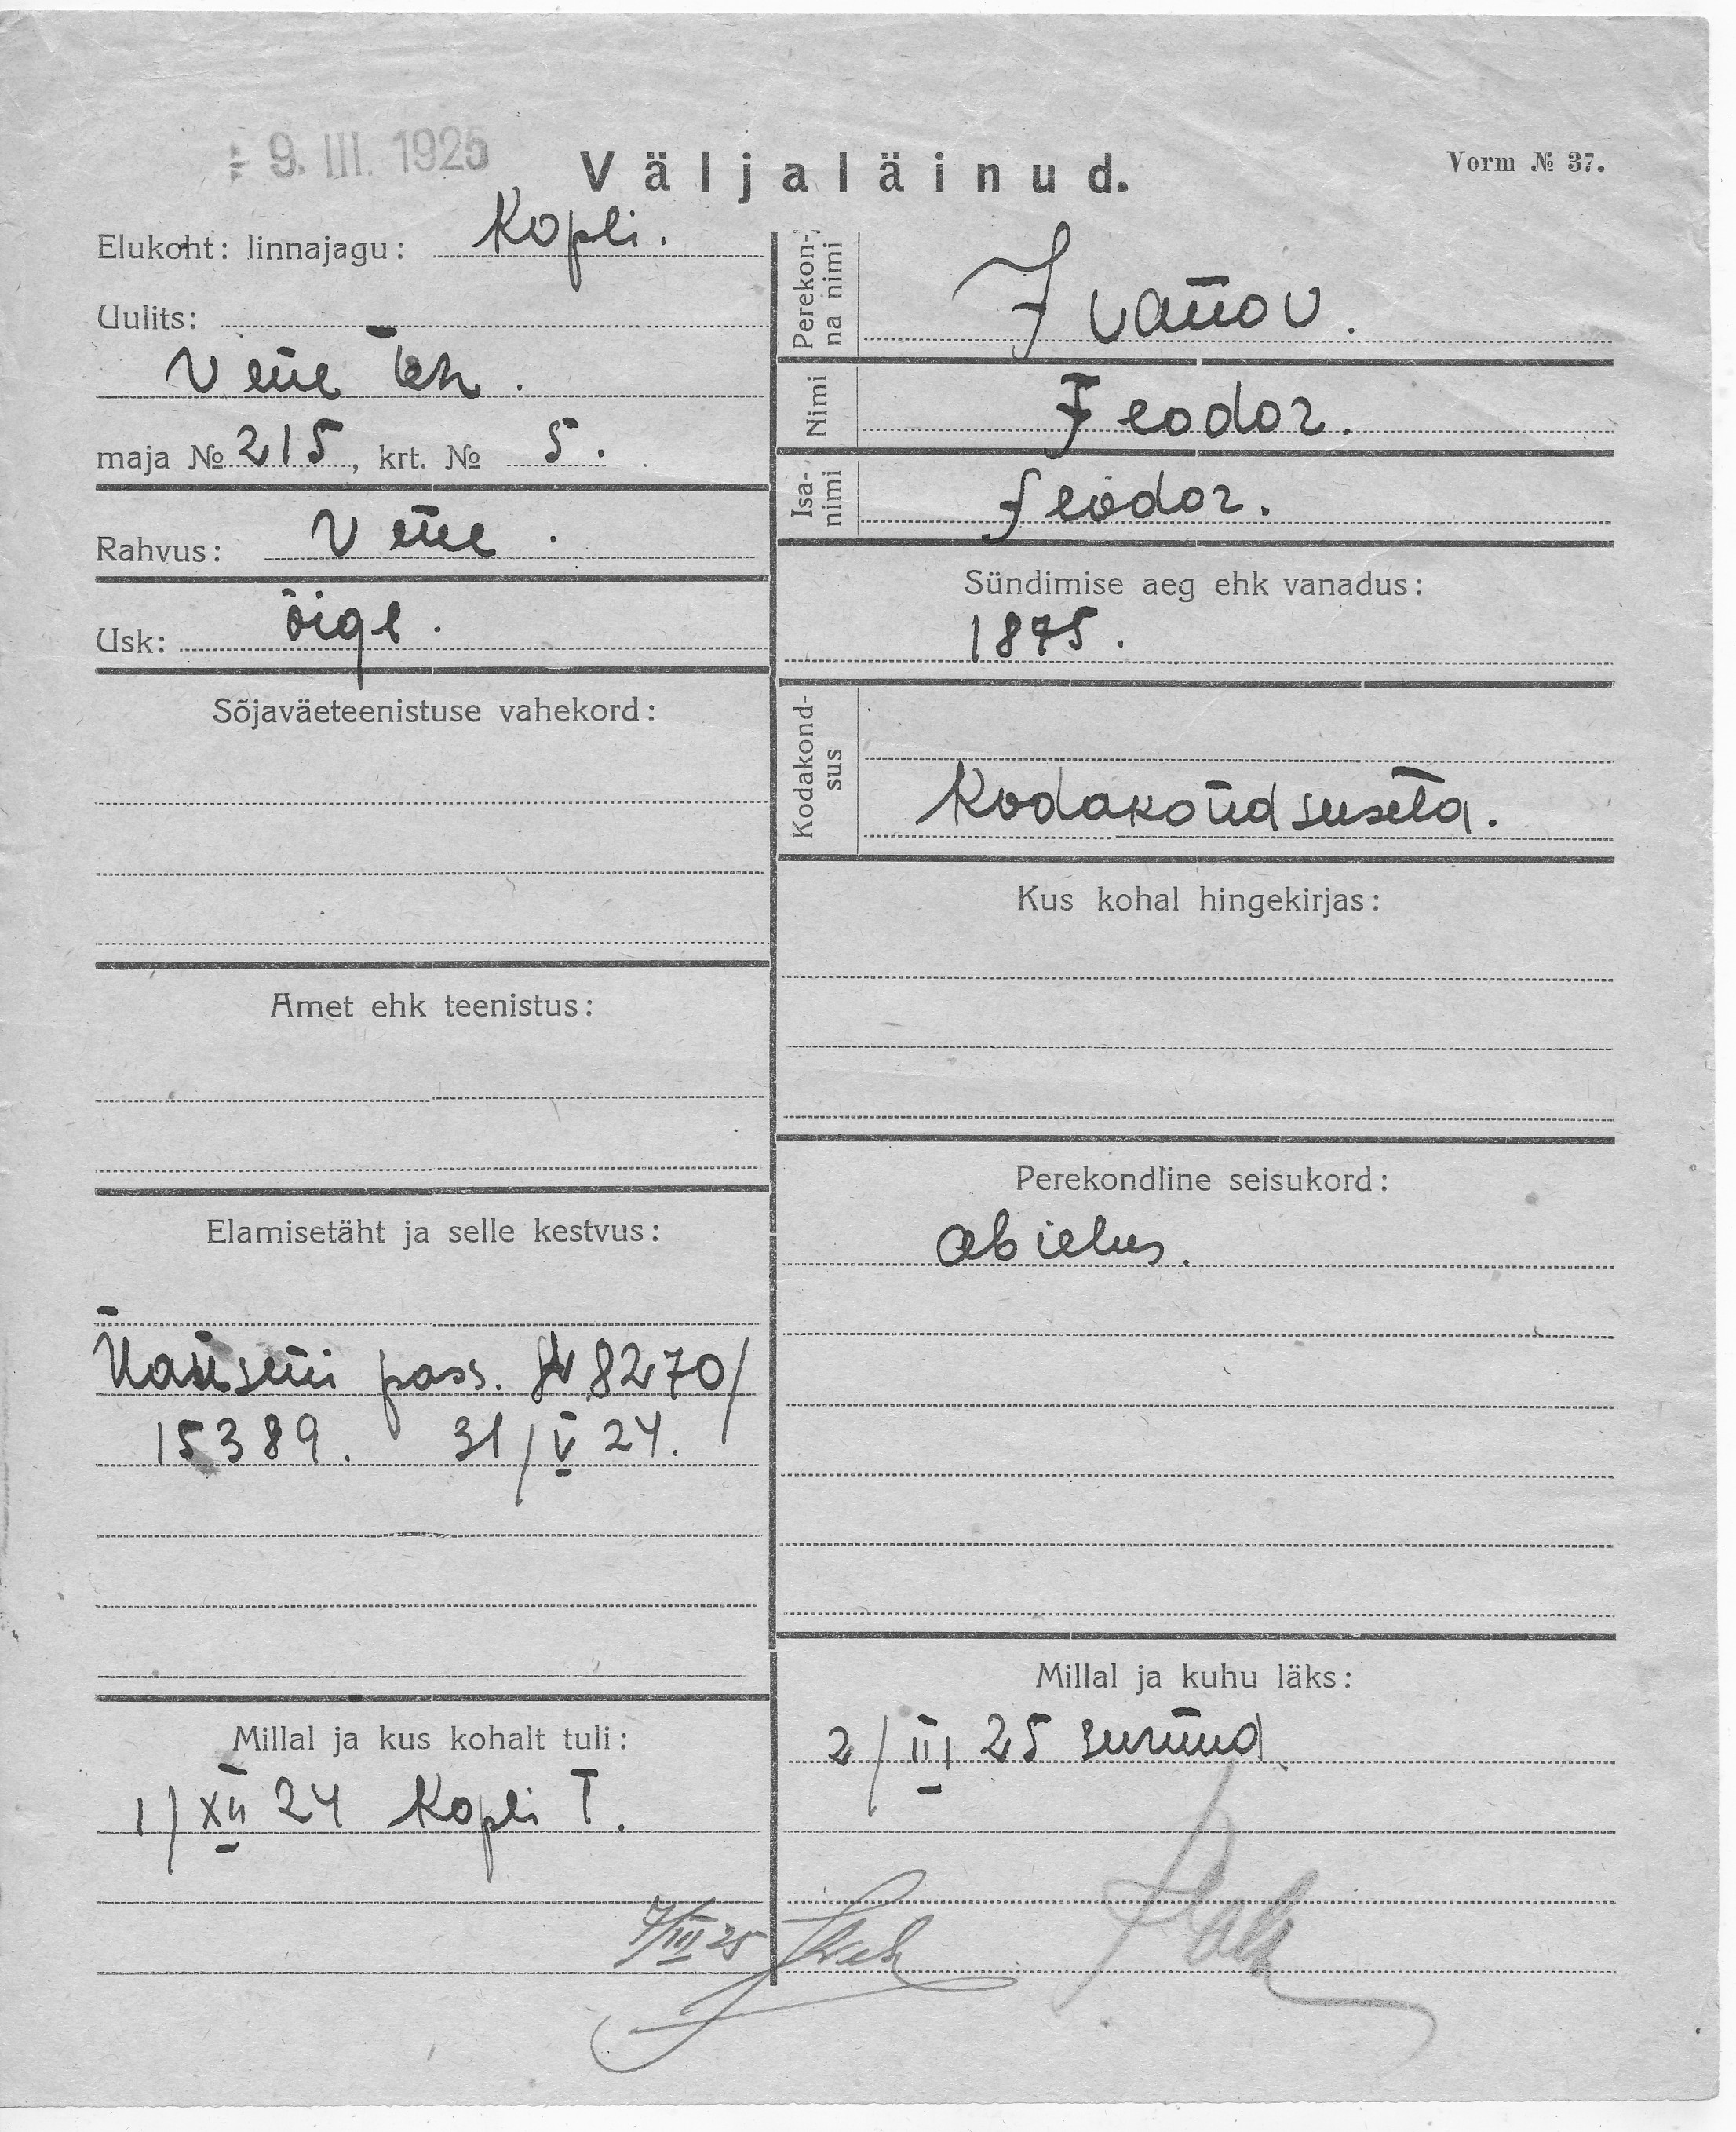 9. III. 1925
Väljaläinud.
Vorm № 37.
Elukoht: linnajagu: Kopli.
Uulits:
Vene teh.
maja № 215, krt. № 5.
Rahvus: Vene.
Usk: õige.
Sõjaväeteenistuse vahekord:
Amet ehk teenistus:
Elamisetäht ja selle kestvus:
Nanseni pass. № 8270/
15389. 31/V 24.
Millal ja kus kohalt tuli:
1/XII 24 Kopli T.
7/III 25
Perekon-
na nimi
Ivanov.
Nimi
Feodor.
Isa-
nimi
Feodor.
Sündimise aeg ehk vanadus:
1875.
Kodakond-
sus
Kodakondsuseta.
Kus kohal hingekirjas:
Perekondline seisukord:
abielus.
Millal ja kuhu läks:
2/III 25 surnud